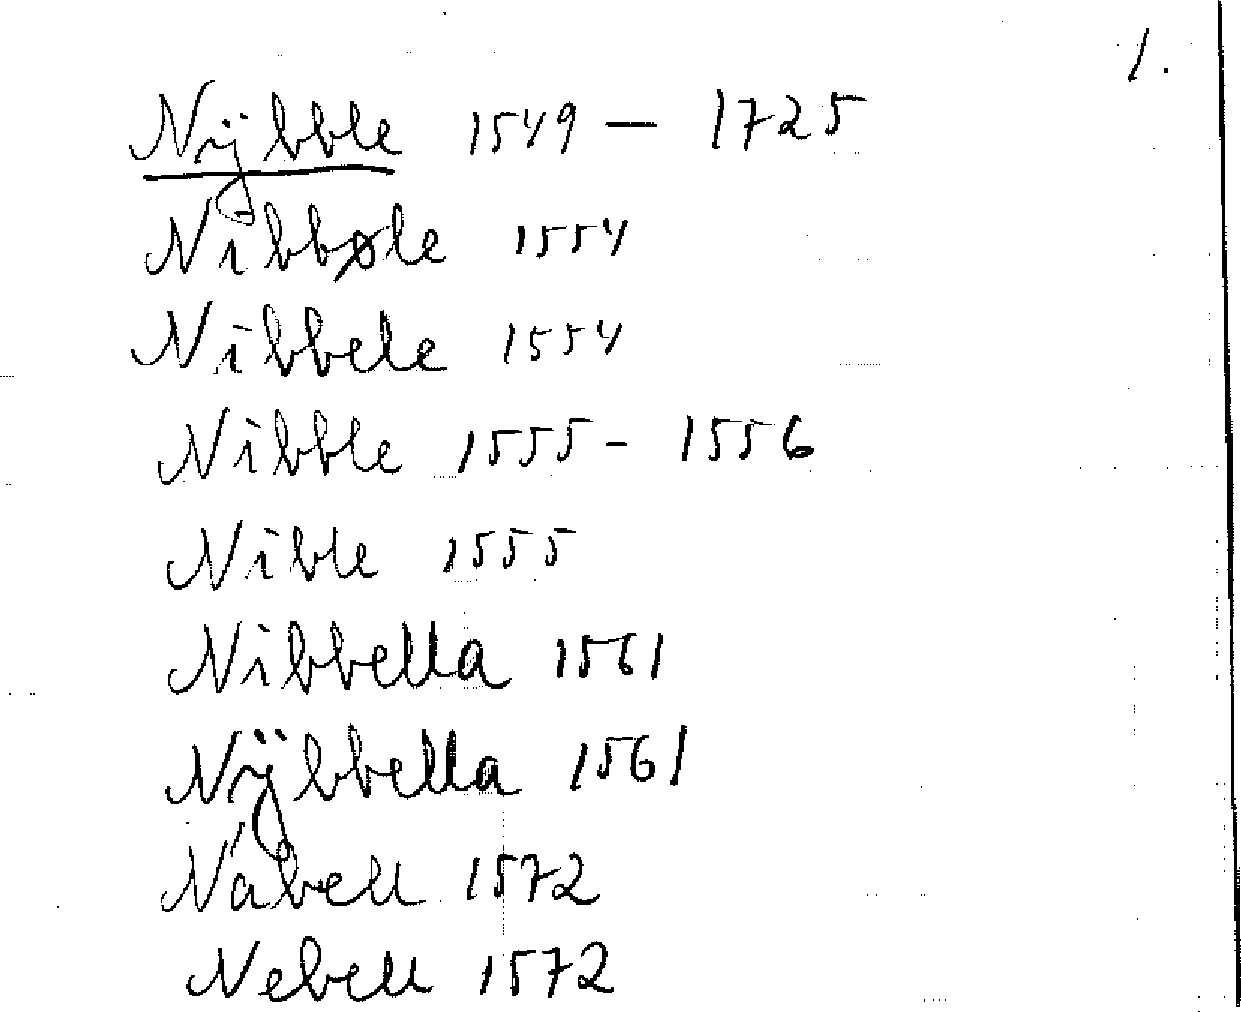 1.
Nÿbble 1549 — 1725
Nibbøle 1554
Nibbele 1554
Nibble 1555 - 1556
Nible 1555
Nibbella 1561
Nÿbbella 1561
Nabell 1572
Nebell 1572